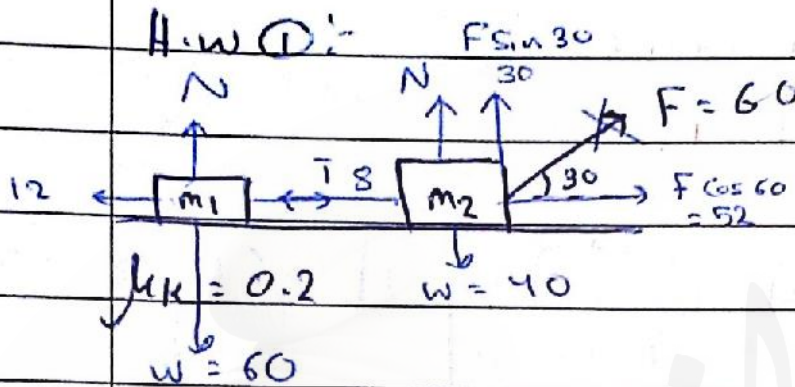 H.w ① :-
F sin 30
30
N
N
F = 60
12
m1
T
8
m2
30
F cos 60
= 52
μk = 0.2
w = 40
w = 60